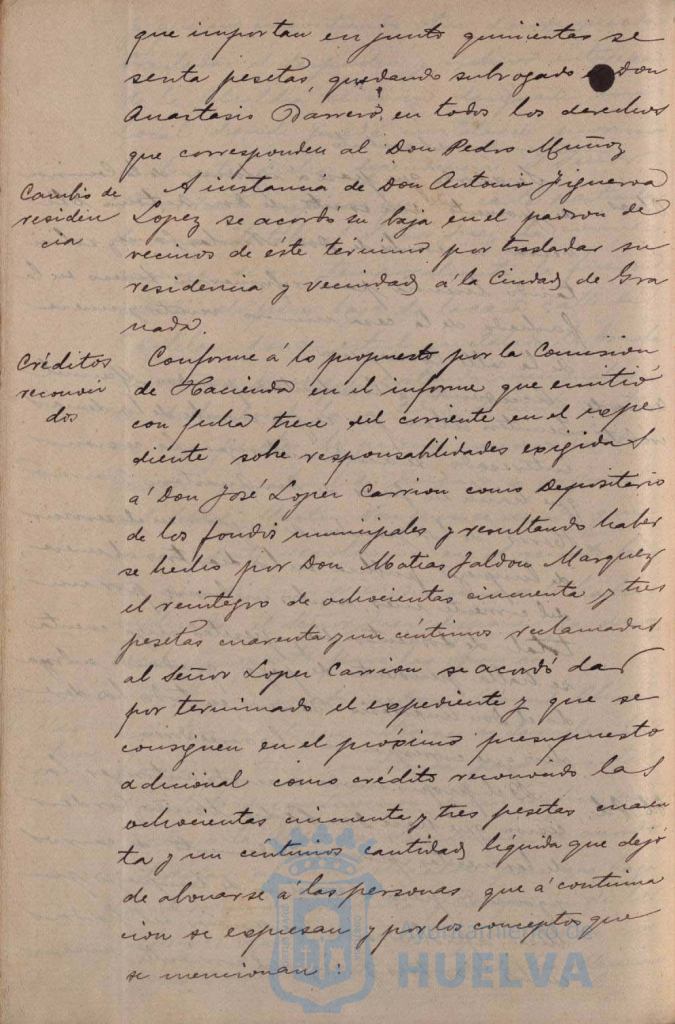 que importan en junto quinientas se
senta pesetas, quedando subrogado Don
Anastasio Barrero, en todos los derechos
que corresponden al Don Pedro Muñoz
Cambio de
residen
cia
A instancia de Don Antonio Figueroa
Lopez se acordó su baja en el padron de
vecinos de éste termino por trasladar su
residencia y vecindad á la Ciudad de Gra
nada.
Créditos
reconoci
dos
Conforme á lo propuesto por la Comision
de Hacienda en el informe que emitió
con fecha trece del corriente en el expe
diente sobre responsabilidades exigidas
á Don José Lopez Carrion como Depositario
de los fondos municipales y resultando haber
se hecho por Don Matias Jaldon Marquez
el reintegro de ochocientas cincuenta y tres
pesetas cuarenta y un céntimos reclamadas
al Señor Lopez Carrion se acordó dar
por terminado el expediente y que se
consignen en el próximo presupuesto
adicional como crédito reconocido las
ochocientas cincuenta y tres pesetas cuaren
ta y un céntimos cantidad líquida que dejó
de abonarse á las personas que á continua
cion se expresan y por los conceptos que
se mencionan:
Ayuntamiento de
HUELVA